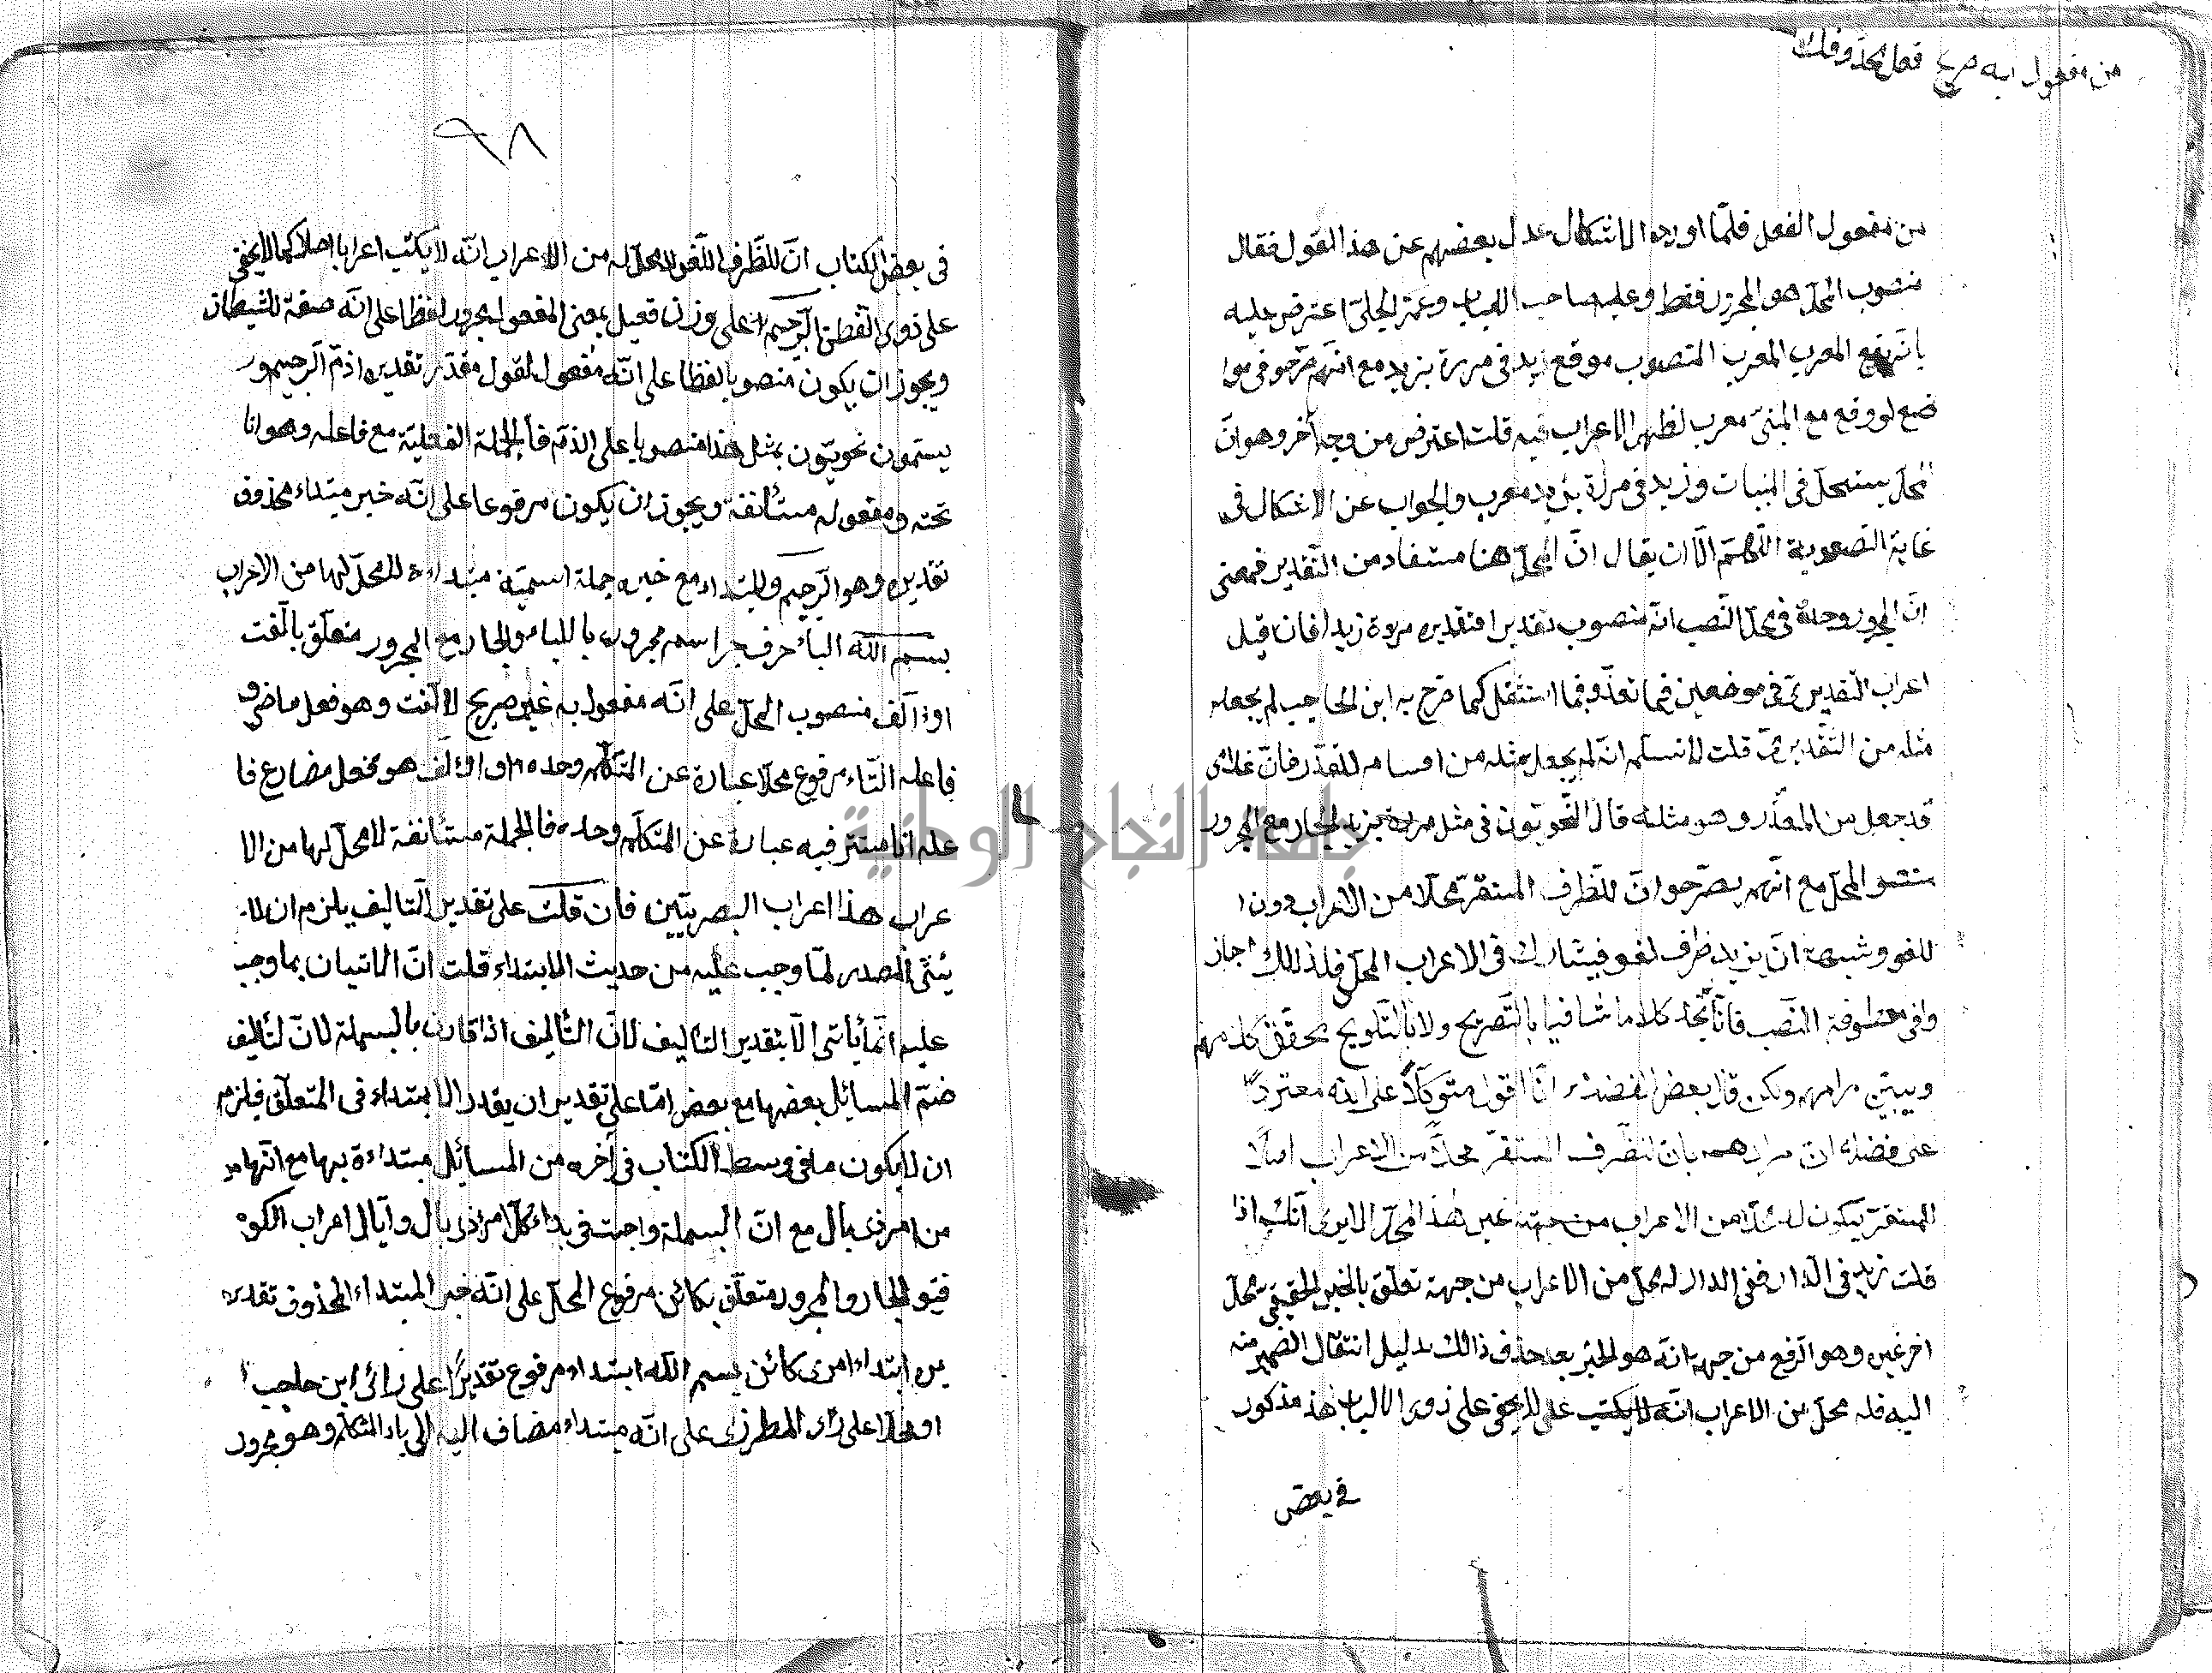 من مفعول به صريح فعل محذوف
من مفعول الفعل فلمّا اورد الاشكال عدل بعضهم عن هذا القول فقال
منصوب المحلّ هو المجرور فقط وعليه صاحب اللباب وعمّ الجلّي اعترض عليه
بانّه يقع المعرب المنصوب موقع زيد في مررة بزيد مع انّهم صرّحوا في موا
ضع لو وقع مع المبنيّ معرب لظهر الاعراب فيه قلت اعترض من وجه آخر وهو انّ
المحلّ يستعمل في المبنيات وزيد في مررة بزيد معرب والجواب عن الاشكال في
غاية الصعوبة اللّهمّ الّا ان يقال انّ المحلّ هنا مستفاد من التّقدير فمعنى
انّ المجرور وحده في محلّ النّصب انّه منصوب تقديرا فتقديره مررة زيدا فان قيل
اعراب التّقديريّ في موضعين فيما تعذّر وفيما استثقل كما صرّح به ابن الحاجب لم يجعله
مثله من التّقديريّ قلت لا نسلّم انّه لم يجعل مثله من اقسامه للتعذّر فانّ غلامى
قد جعل من المتعذّر وهو مثله قال النّحويّون في مثل مررة بزيد الجار مع المجرور
منصو المحلّ مع انّهم يصرّحوا انّ للظّرف المستقرّ محلّا من الاعراب دون ا
للغو وشبهة انّ بزيد ظرف لغو فيشارك في الاعراب المحلّ فلذالك اجاز
وا في معطوفة النّصب فانّا نجد كلاما شافيا بالتّصريح ولا بالتّلويح يحقّق كلامهم
ويبيّن مرامهم ولكن قال بعض الفضلاء انا اقول متوكّلا على الله معتمدا
على فضله انّ مرادهم بان للظّرف المستقرّ محلّا من الاعراب اصلا
المستقرّ يكون له محلّا من الاعراب من جهة غير هذا المحلّ الا يرى انّك اذا
قلت زيد في الدّار ففي الدار له محلّ من الاعراب من جهة تعلّق بالخبر الحقيقي محلّ
اخر غيره وهو الرفع من جهة انّه هو الخبر بعد حذف ذالك بدليل انتقال الضمير منه
اليه فله محلّ من الاعراب انّه لا يكتب على لا يخفى على ذوى الالباب هذا مذكور
في بعض
٩٨
في بعض الكتاب انّ للظّرف اللّغو لا محلّ له من الاعراب انّه لا يكتب اعرابا اصلا كما لا يخفى
على ذوى الفطن الرّجيم على وزن فعيل بمعنى المفعول مجرور لفظا على انّه صفة للشيطان
ويجوز ان يكون منصوبا لفظا على انّه مفعول لقول مقدّر تقديره اذمّ الرّجيم و
يسمّون نحويّون بمثل هذا منصوبا على الذمّ فالجملة الفعليّة مع فاعله وهو انا
تحته ومفعوله مستأنفة ويجوز ان يكون مرفوعا على انّه خبر مبتداء محذوف
تقديره وهو الرّجيم والمبتداء مع خبره جملة اسميّة مبتداءة لا محلّ لها من الاعراب
بسم الله الباء حرف جر اسم مجرور بالباء والجار مع المجرور متعلّق بالّفت
او الّف منصوب المحلّ على انّه مفعول به غير صريح لالّفت وهو فعل ماض و
فاعله التّاء مرفوع محلّا عبارة عن المتكلّم وحده او الّف هو فعل مضارع فا
عله انا مستتر فيه عبارة عن المتكلّم وحده فالجملة مستأنفة لا محلّ لها من الا
عراب هذا اعراب البصريّين فان قلت على تقدير التّاليف يلزم ان لا
يئتى المصدر لمّا وجب عليه من حديث الابتداء قلت انّ الاتيان بما وجب
عليه انّما يأتى الّا بتقدير التاليف لانّ التّأليف اذا قارن بالبسملة لانّ لتأليف
ضمّ المسائل بعضها مع بعض امّا على تقدير ان يقدر الابتداء في المتعلّق فلزم
ان لا يكون ما في وسط الكتاب في آخره من المسائل مبتداءة بها مع انّها
من امر ذى بال مع انّ البسملة واجبة في بداء كلّ امر ذى بال وايّا الى اعراب الكو
فيّو الجار والمجرور متعلّق بكائن مرفوع المحلّ على انّه خبر المبتداء المحذوف تقد
يره ابتداء امرى كائن بسم الله ابتداء مرفوع تقديرًا على رائ ابن حاجب ا
او محلّا على رأى المطرزى على انّه مبتداء مضاف اليه الى ياء المتكلّم وهو مجرور
جامعة النجاح الوطنية